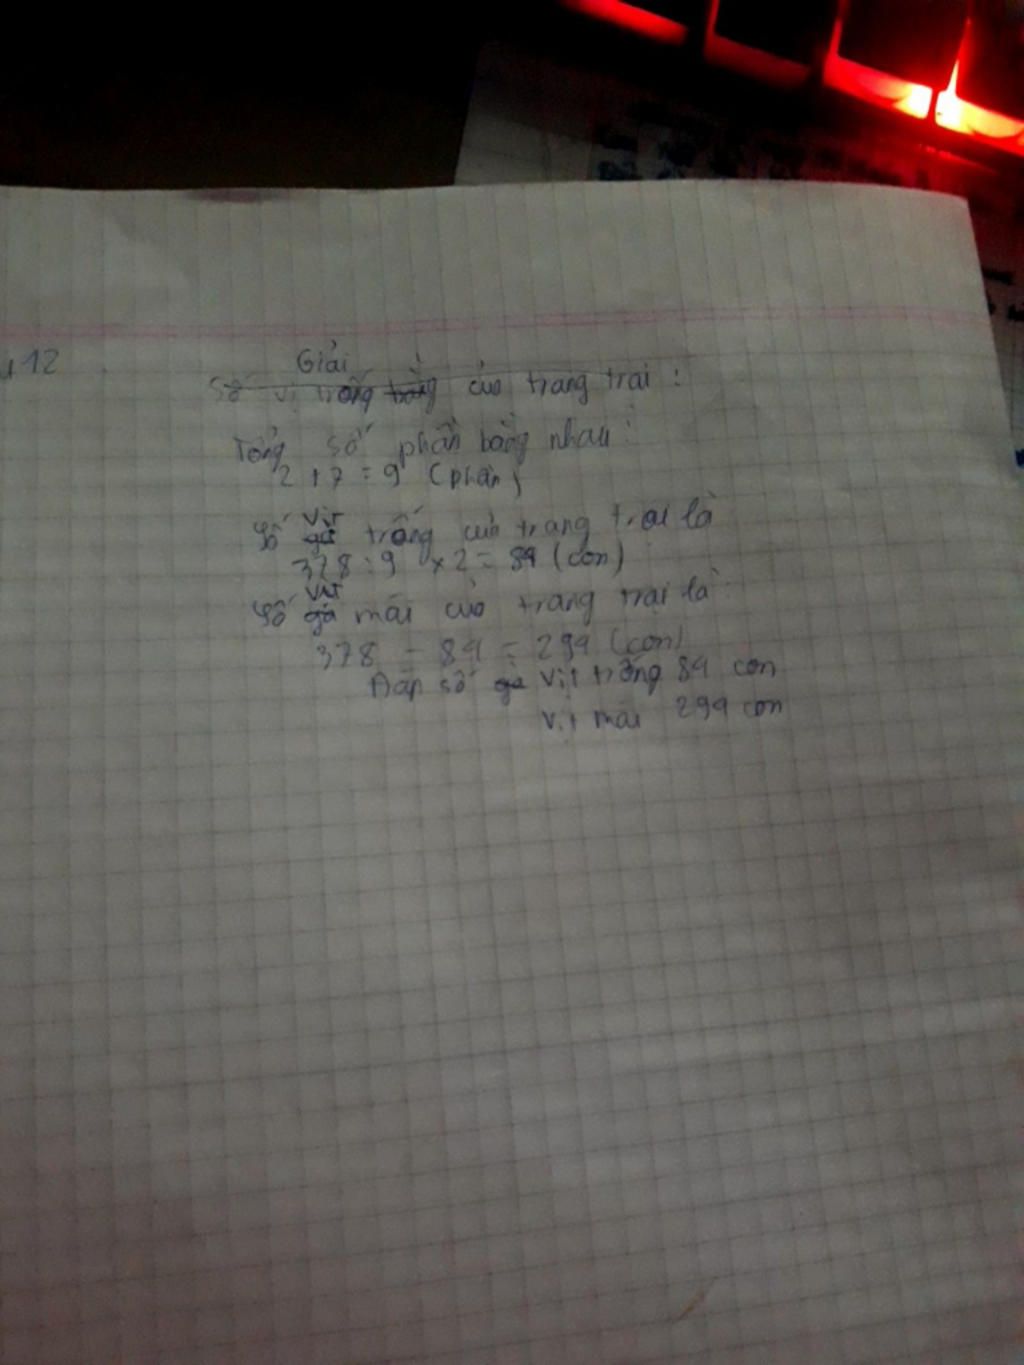 12
Giải
Số vị trống trống của trang trại :
Tổng số phần bằng nhau :
2 + 7 = 9 (phần)
Số gà vịt trống của trang trại là
378 : 9 x 2 = 84 (con)
Số gà vịt mái của trang trại là :
378 - 84 = 294 (con)
Đáp số gà vịt trống 84 con
vịt mái 294 con